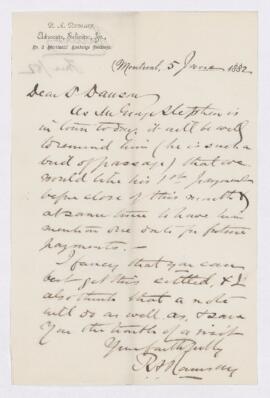 R. A. RAMSAY,
Advocate, Solicitor, &c.
Montreal, 5 June 1882
Dear Dr Dawson
As Mr George Stephen is
in town to day, it will be well
to remind him (he is such a
bird of passage) that we
would like his 1st payment
before close of this month &
at same time to have him
mention one date for future
payments.—
I fancy that you can
best get this settled, & I
also think that a note
will do as well as, & save
you the trouble of a visit
Yours faithfully
R A Ramsay